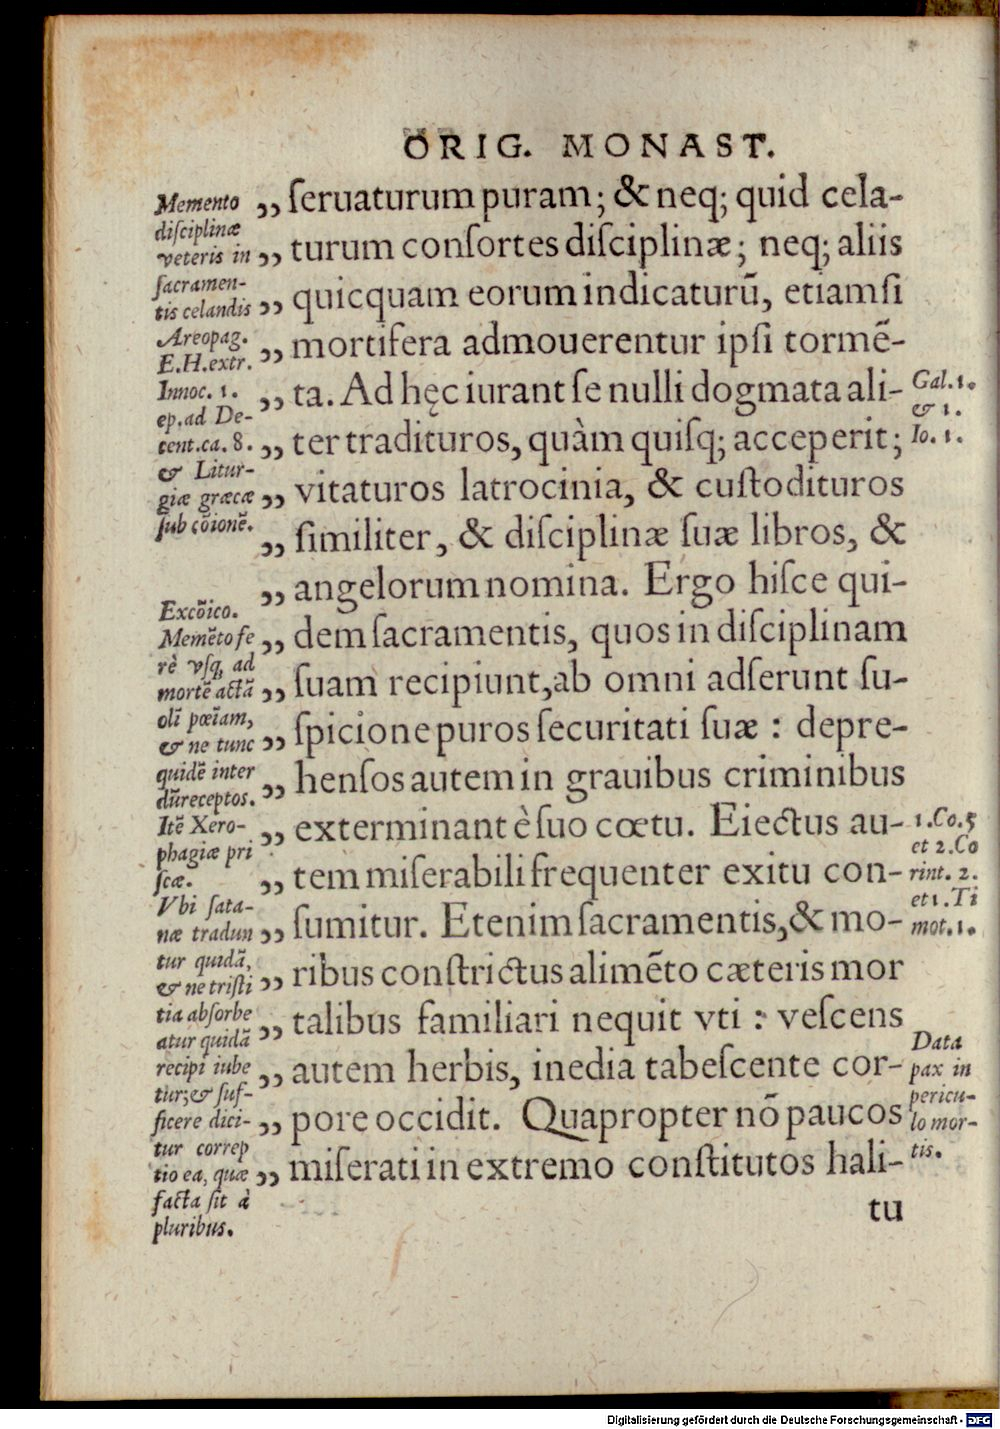 ORIG. MONAST.
Memento
diſciplinæ
veteris in
ſacramen-
tis celandis
Areopag.
E.H.extr.
Innoc. 1.
ep.ad De-
cent.ca. 8.
& Litur-
giæ græcæ
ſub cōionē.
Excōico.
Memēto fe
rè vſq, ad
mortē actā
olī pœīam,
& ne tunc
quidē inter
dū receptos.
Itē Xero-
phagiæ pri
ſcæ.
Vbi ſata-
næ tradun
tur quidā,
& ne triſti
tia abſorbe
atur quidā
recipi iube
tur; & ſuf-
ficere dici-
tur correp
tio ea, quæ
facta ſit à
pluribus.
„ ſeruaturum puram; & neq; quid cela-
„ turum conſortes diſciplinæ; neq; aliis
„ quicquam eorum indicaturū, etiamſi
„ mortifera admouerentur ipſi tormē-
„ ta. Ad hęc iurant ſe nulli dogmata ali-
„ ter tradituros, quàm quiſq; acceperit;
„ vitaturos latrocinia, & cuſtodituros
„ ſimiliter, & diſciplinæ ſuæ libros, &
„ angelorum nomina. Ergo hiſce qui-
„ dem ſacramentis, quos in diſciplinam
„ ſuam recipiunt, ab omni adſerunt ſu-
„ ſpicione puros ſecuritati ſuæ : depre-
„ henſos autem in grauibus criminibus
„ exterminant è ſuo cœtu. Eiectus au-
„ tem miſerabili frequenter exitu con-
„ ſumitur. Etenim ſacramentis, & mo-
„ ribus conſtrictus alimēto cæteris mor
„ talibus familiari nequit vti : veſcens
„ autem herbis, inedia tabeſcente cor-
„ pore occidit. Quapropter nō paucos
„ miſerati in extremo conſtitutos hali-
tu
Gal.1.
& 1.
Io. 1.
1.Co.5
et 2.Co
rint. 2.
et 1.Ti
mot.1.
Data
pax in
pericu-
lo mor-
tis.
Digitalisierung gefördert durch die Deutsche Forschungsgemeinschaft - DFG